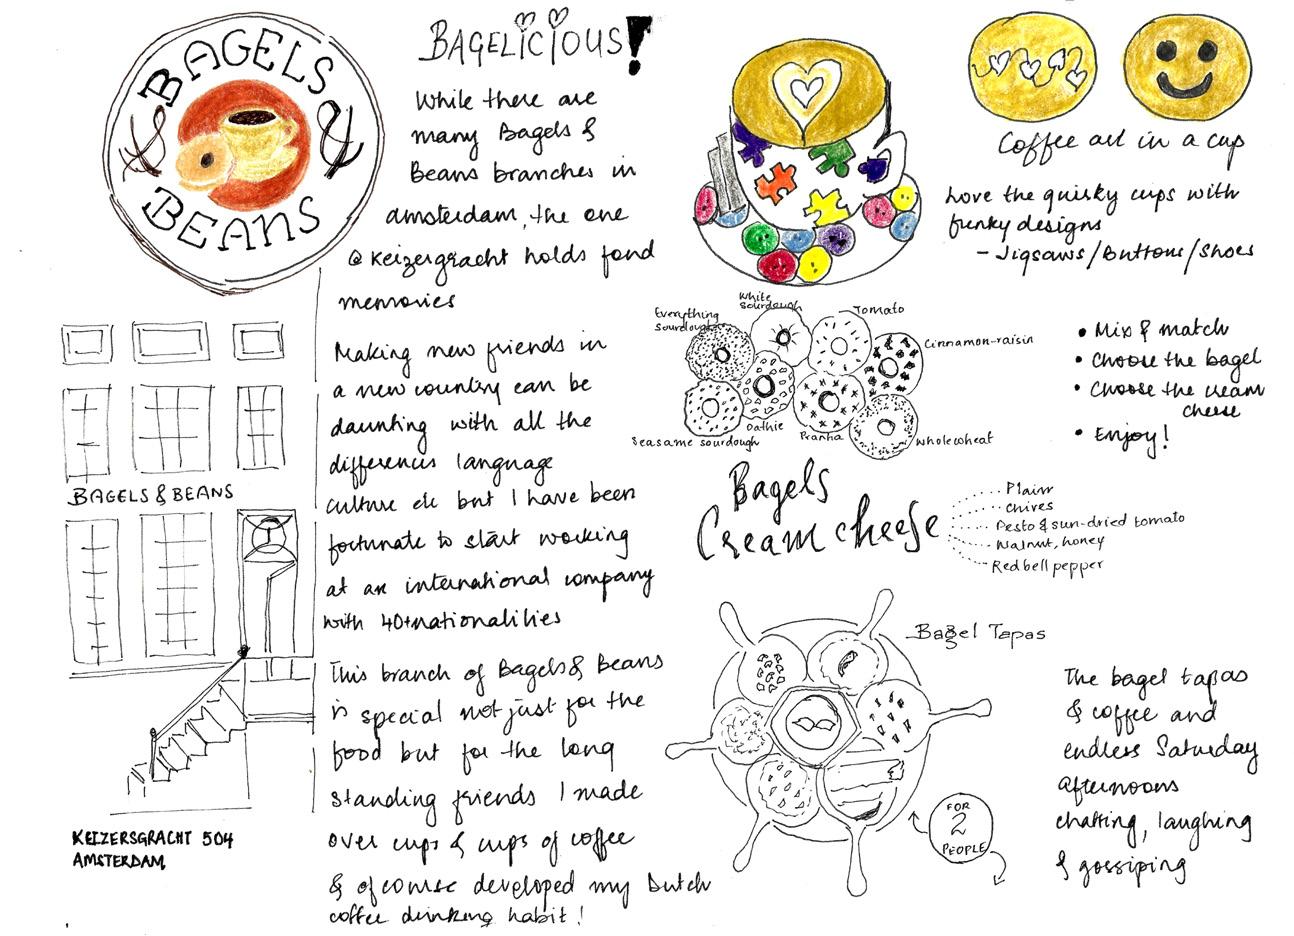 BAGELS & BEANS
BAGELICIOUS!
While there are
many Bagels &
Beans branches in
amsterdam, the one
@ Keizergracht holds fond
memories
Making new friends in
a new country can be
daunting with all the
differences language
culture etc but I have been
fortunate to start working
at an international company
with 40+nationalities
This branch of Bagels & Beans
is special not just for the
food but for the long
standing friends I made
over cups & cups of coffee
& ofcourse developed my Dutch
coffee drinking habit!
BAGELS & BEANS
KEIZERSGRACHT 504
AMSTERDAM
Coffee art in a cup
Love the quirky cups with
funky designs
- Jigsaws/Buttons/Shoes
Everything
sourdough
White
sourdough
Tomato
Cinnamon-raisin
Seasame sourdough
Oathie
Piranha
Wholewheat
• Mix & match
• Choose the bagel
• Choose the cream
cheese
• Enjoy!
Bagels
Cream cheese
Plain
Chives
Pesto & sun-dried tomato
Walnut, honey
Red bell pepper
Bagel Tapas
FOR
2
PEOPLE
The bagel tapas
& coffee and
endless Saturday
afternoons
chatting, laughing
& gossiping